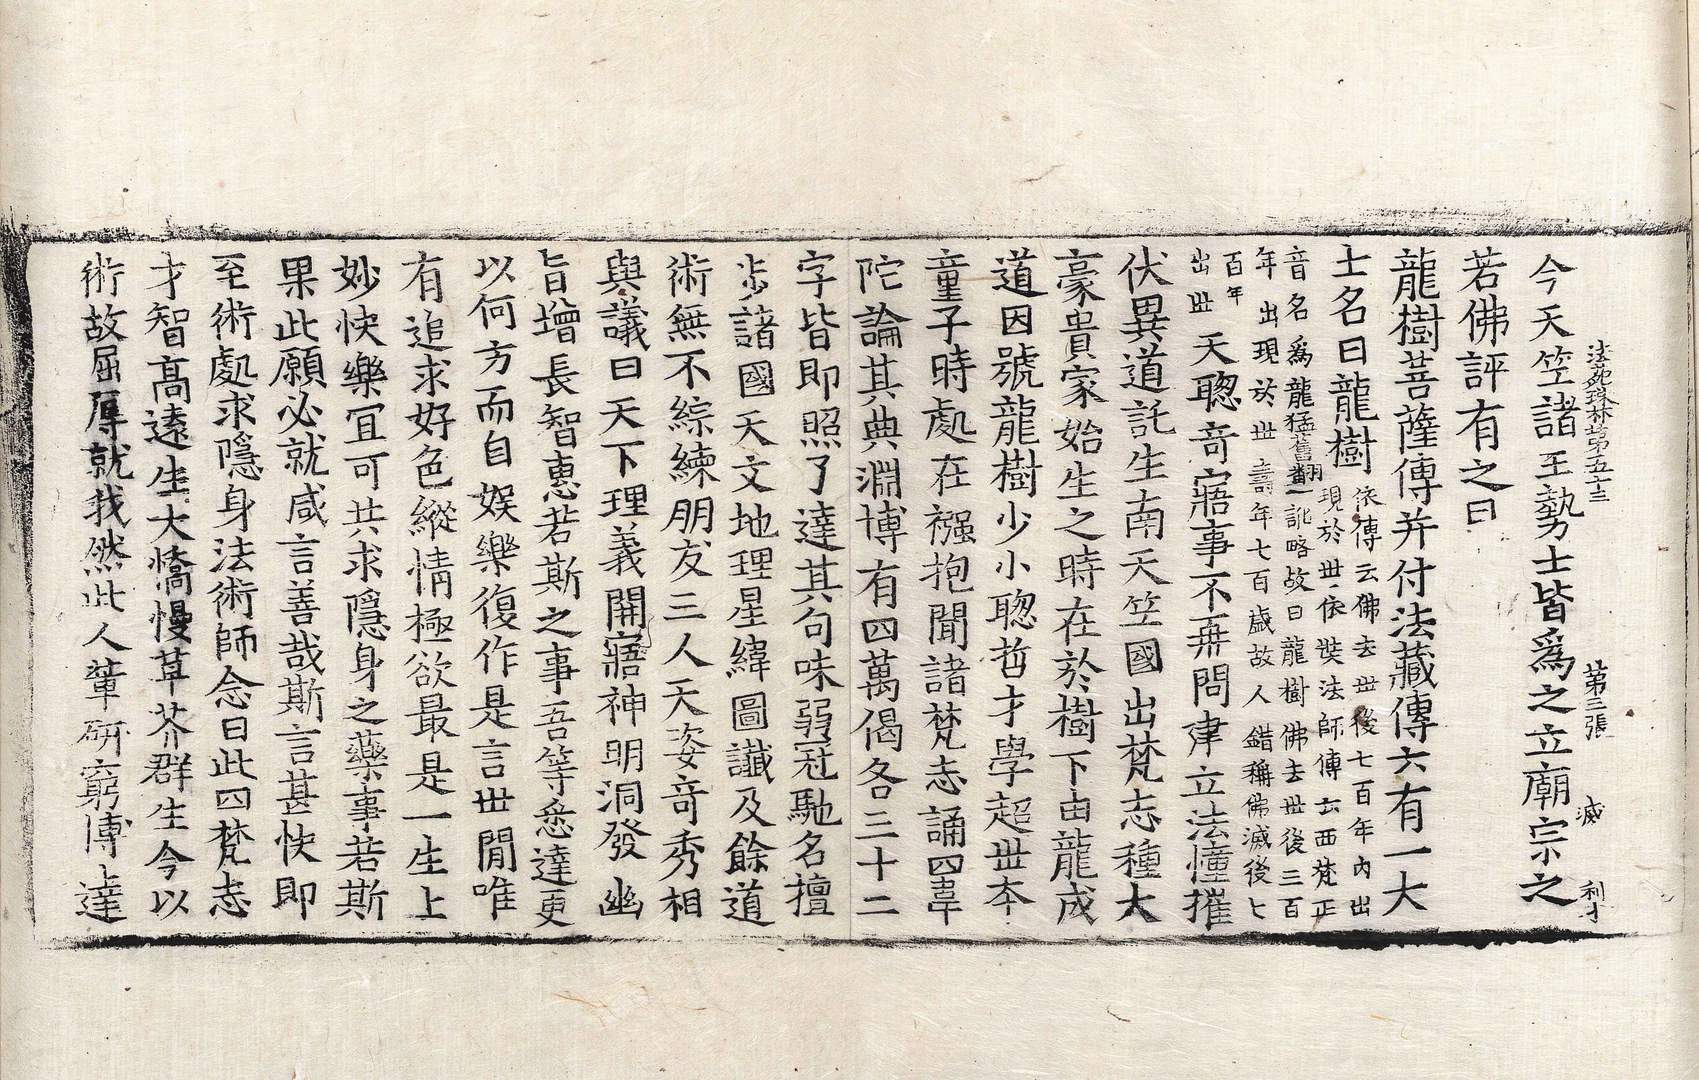 法苑珠林卷第五十三 第三張 滅 利才
今天竺諸王勢士皆爲之立廟宗之
若佛評有之曰
龍樹菩薩傳并付法藏傳六有一大
士名曰龍樹
依傳云佛去世後七百年內出
現於世依奘法師傳云西梵正
音名爲龍猛舊翻訛略故曰龍樹佛去世後三百
年出現於世壽年七百歲故人錯稱佛滅後七
百年
出世
天聦竒寤事不再問建立法幢摧
伏異道託生南天竺國出梵志種大
豪貴家始生之時在於樹下由龍成
道因號龍樹少小聦哲才學超世本
童子時處在襁抱聞諸梵志誦四韋
陀論其典淵博有四萬偈各三十二
字皆即照了達其句味弱冠馳名擅
步諸國天文地理星緯圖讖及餘道
術無不綜練朋友三人天姿竒秀相
與議曰天下理義開寤神明洞發幽
旨增長智惠若斯之事吾等悉達更
以何方而自娛樂復作是言世閒唯
有追求好色縱情極欲最是一生上
妙快樂冝可共求隱身之藥事若斯
果此願必就咸言善哉斯言甚快即
至術處求隱身法術師念曰此四梵志
才智高遠生大憍慢草芥群生今以
術故屈辱就我然此人輩研窮博達